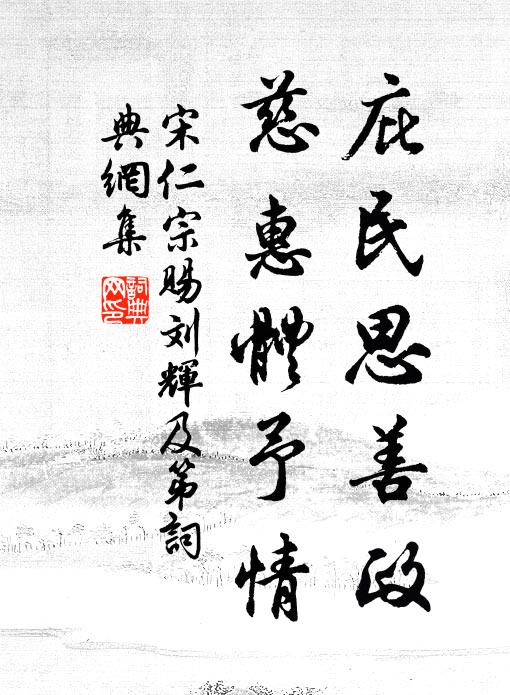 庇民思善政
慈惠體予情
宋仁宗賜刘輝及第詞
典網集
詞典
网印